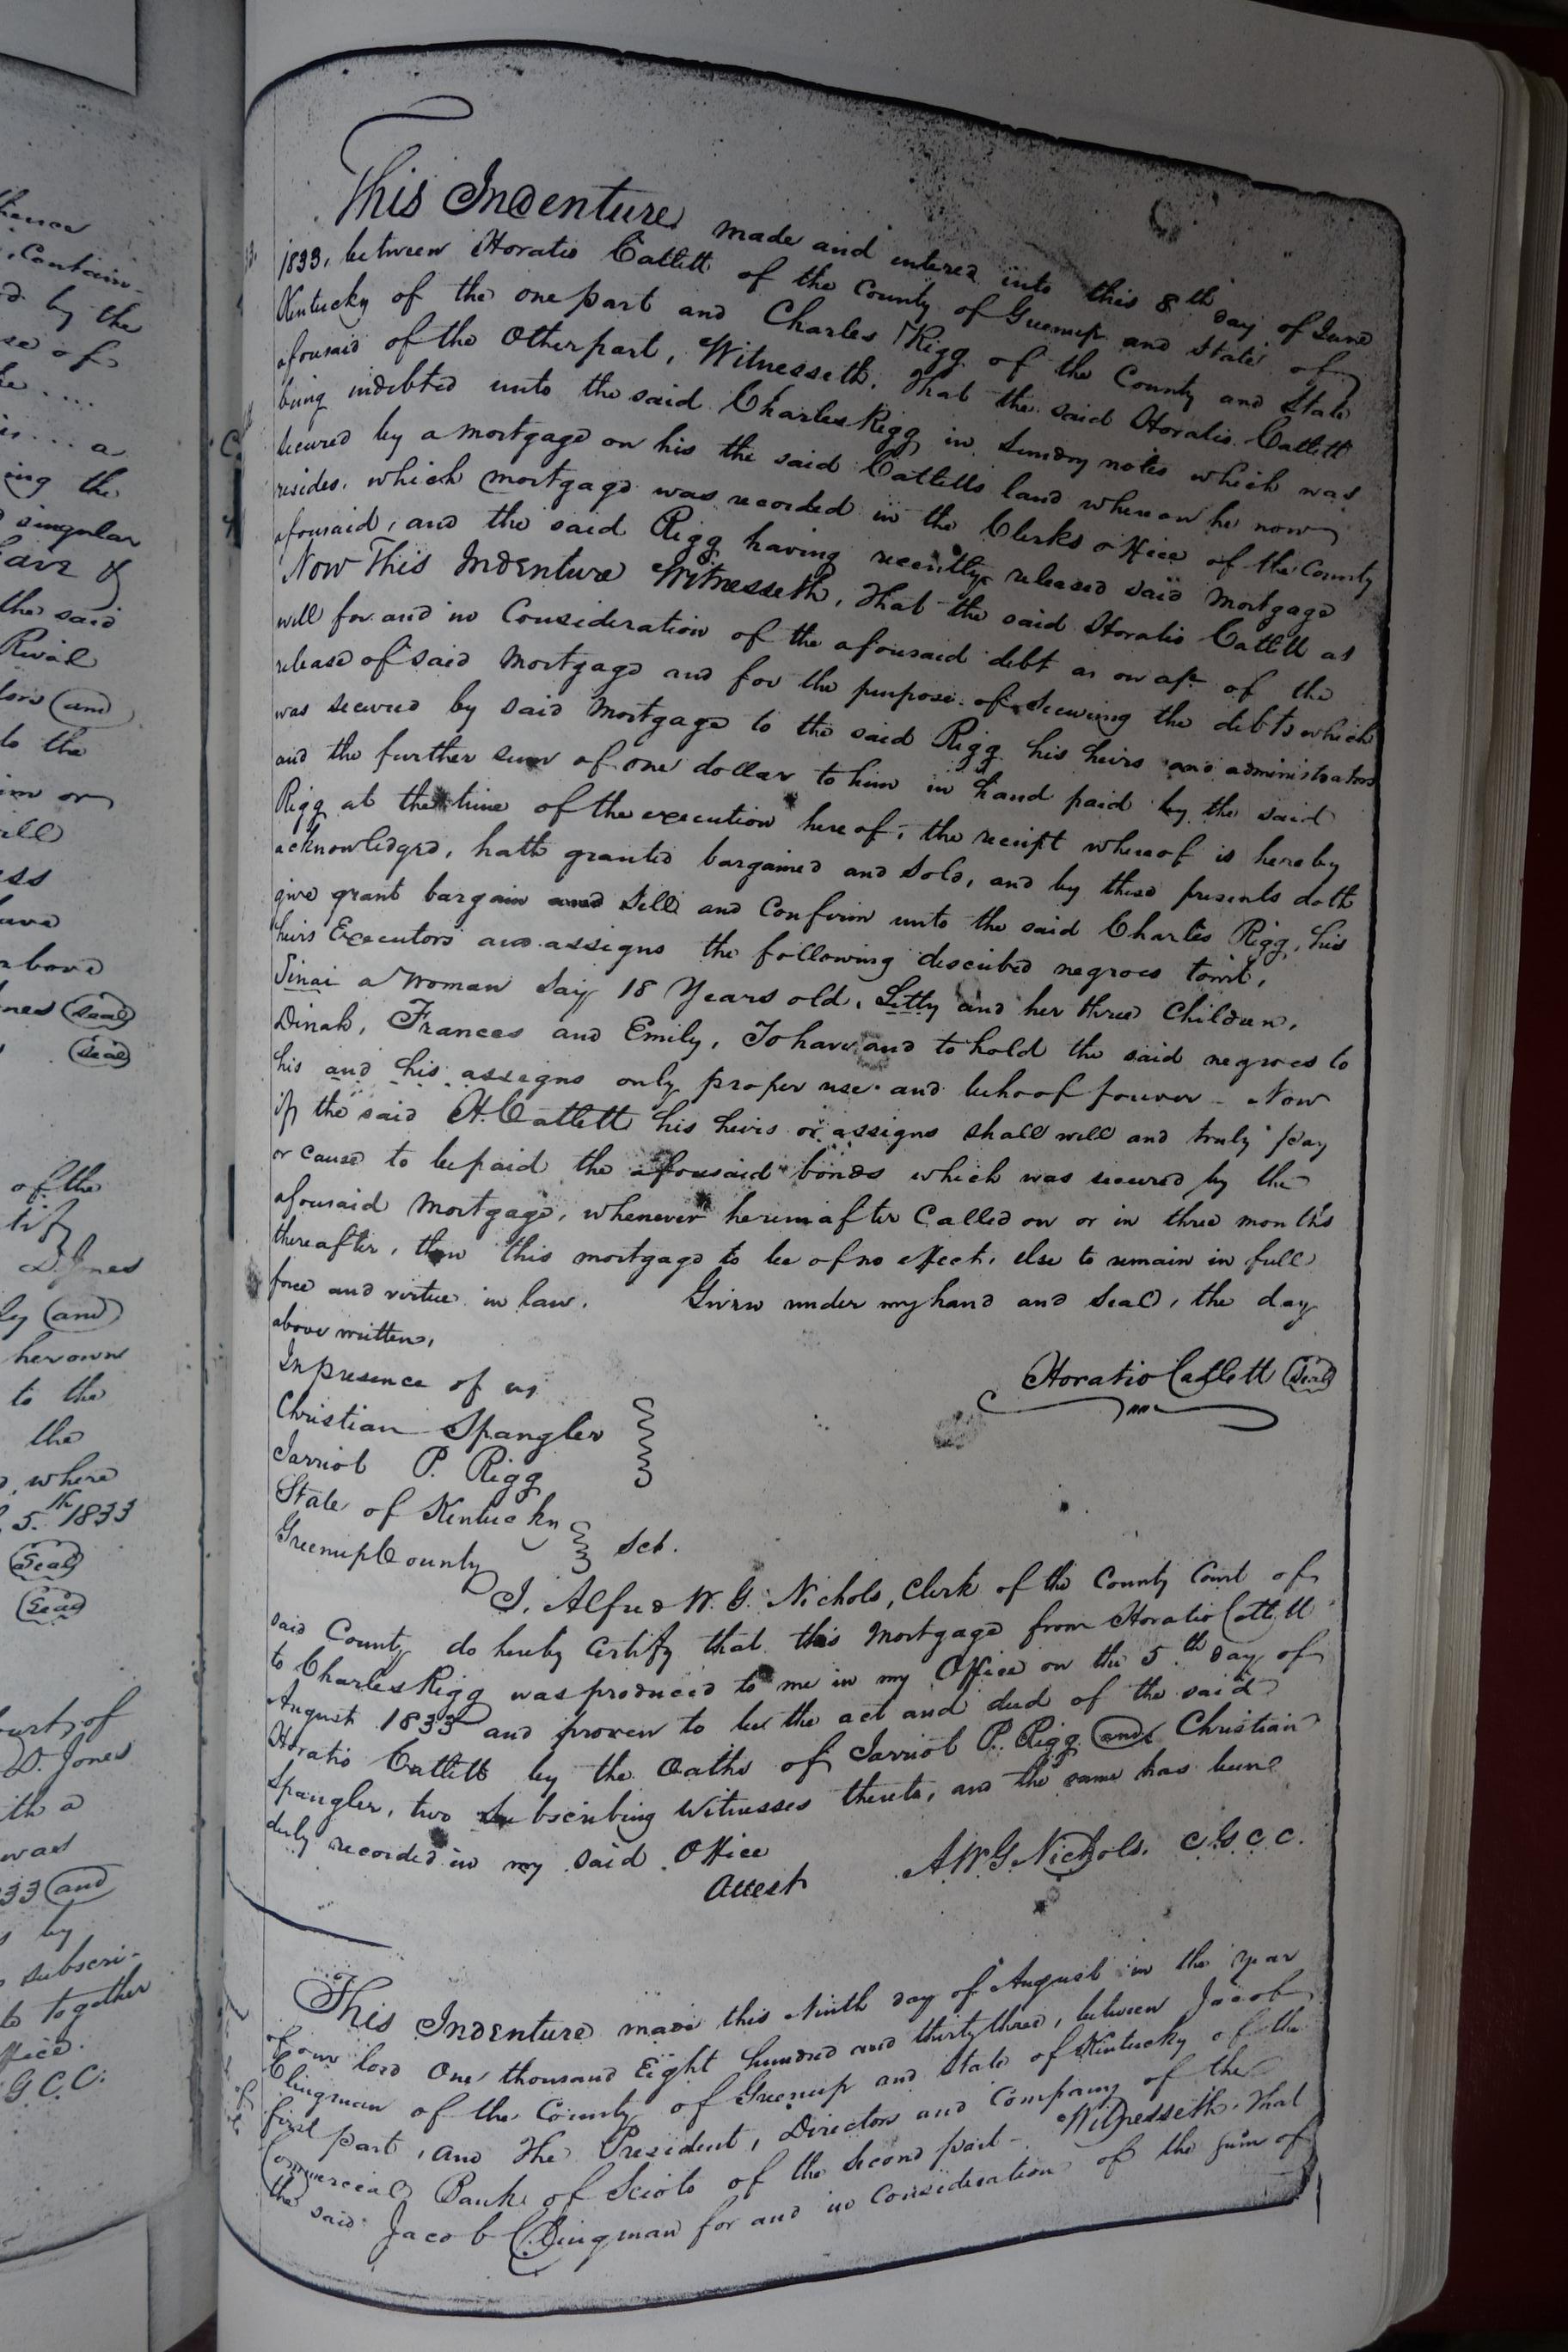 hence
Contain-
d by the
se of
he ....
is ... a
ing the
d singular
the said
lors (and)
to the
im or
ill
ess
have
above
Jones (Seal)
(Seal)
of the
tify
D. Jones
ley (and)
her own
to the
the
d, where
5.th 1833
(Seal)
(Seal)
ourt of
D. Jones
ith a
was
33 (and)
s by
subscri-
to together
ffice.
G C. C.
This Indenture made and entered into this 8th day of June
1833, between Horatio Catlett of the County of Greenup and State of
Kentucky of the one part and Charles Rigg of the County and State
aforesaid of the Other part, Witnesseth, That the said Horatio Catlett
being indebted unto the said Charles Rigg in Sundry notes which was
secured by a mortgage on his the said Catletts land whereon he now
resides, which mortgage was recorded in the Clerks office of the County
aforesaid, and the said Rigg having recently released said Mortgage
Now This Indenture Witnesseth, That the said Horatio Catlett as
well for and in Consideration of the aforesaid debt as on a/c of the
release of said Mortgage and for the purpose of Securing the debts which
was secured by said Mortgage to the said Rigg his heirs and administrators
and the further sum of one dollar to him in hand paid by the said
Rigg at the time of the execution hereof, the receipt whereof is hereby
acknowledged, hath granted bargained and Sold, and by these presents doth
give grant bargain and Sell and Confirm unto the said Charles Rigg, his
heirs Executors and assigns the following described negroes towit,
Sinai a Woman Say 18 Years old, Letty and her three Children,
Dinah, Frances and Emily, To have and to hold the said negroes to
his and his assigns only proper use and behoof forever - Now
if the said H. Catlett his heirs or assigns shall well and truly pay
or cause to be paid the aforesaid bonds which was secured by the
aforesaid Mortgage, whenever hereinafter Called on or in three months
thereafter, then this mortgage to be of no effect, else to remain in full
force and virtue in law. Given under my hand and Seal, the day
above written,
In presence of us
Horatio Catlett (Seal)
Christian Spangler
Jarriot P. Rigg
State of Kentucky
Greenup County Sct.
I, Alfred W. G. Nichols, Clerk of the County Court of
said County do hereby Certify that this Mortgage from Horatio Catlett
to Charles Rigg was produced to me in my Office on the 5th day of
August 1833 and proven to be the act and deed of the said
Horatio Catlett by the Oaths of Jarriot P. Rigg and Christian
Spangler, two Subscribing Witnesses thereto, and the same has been
duly recorded in my said Office
Attest A W G Nichols. C. G. C. C.
This Indenture made this Ninth day of August in the year
of our lord One thousand Eight hundred and thirty three, between Jacob
Clingman of the County of Greenup and State of Kentucky of the
first part, and The President, Directors and Company of the
Commercial Bank of Scioto of the Second part - Witnesseth, That
the said Jacob Clingman for and in Consideration of the sum of